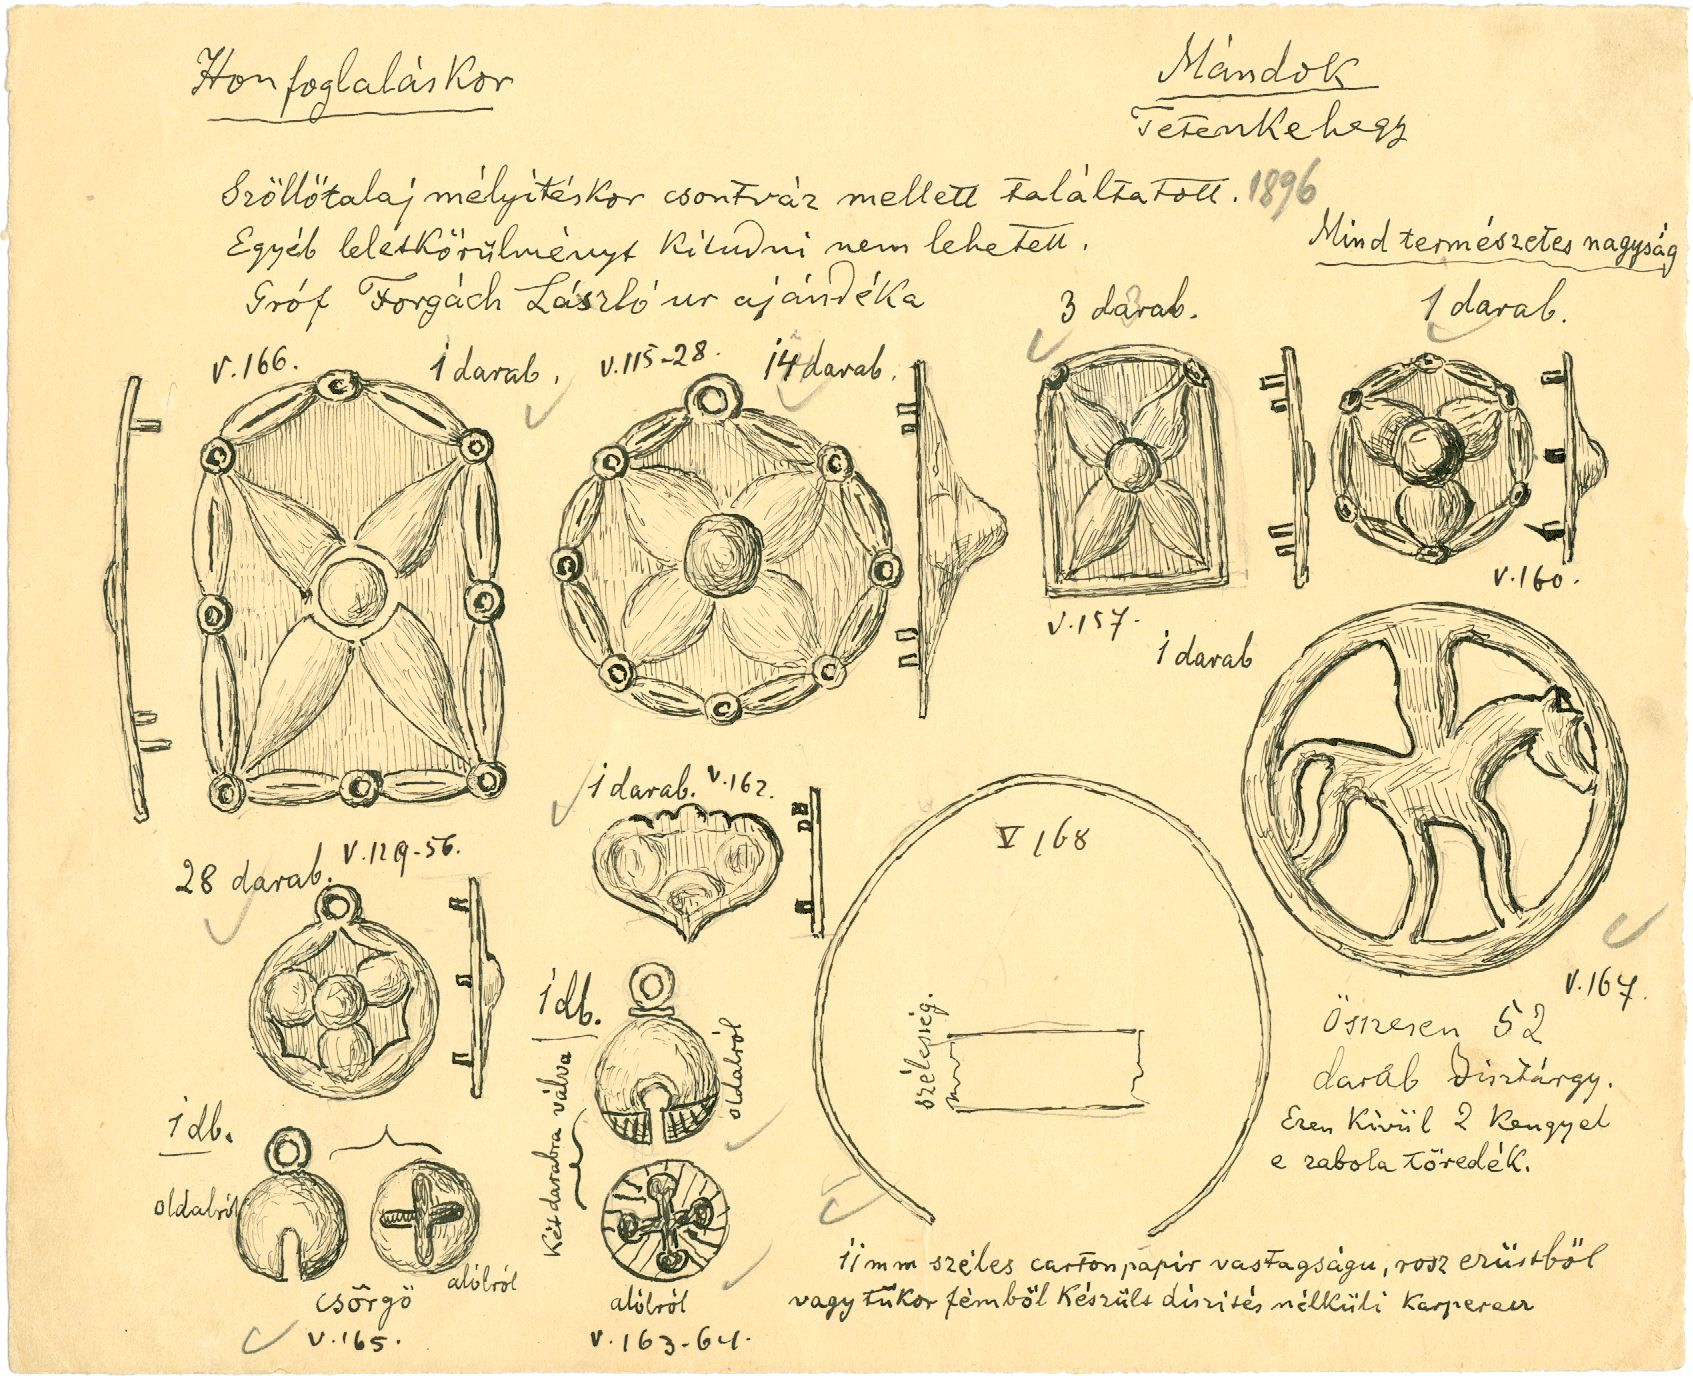 Honfoglaláskor
Mándok
Tetenkehegy
Szőllőtalaj mélyitéskor csontváz mellett találtatott. 1896
Egyéb leletkörülményt kitudni nem lehetett.
Gróf Forgách László ur ajándéka
Mind természetes nagyság
3 darab.
1 darab.
V.166.
1 darab.
V.115-28.
14 darab.
V.160.
V.157.
1 darab
1 darab. V.162.
28 darab. V.129-56.
V 168
V.167.
1 db.
Két darabra válva
oldalról
szélesség.
Összesen 52
darab Disztárgy.
Ezen Kivül 2 Kengyel
e zabola töredék.
1 db.
oldalról
alólról
csörgö
V.165.
alólról
V.163-64.
11 mm széles cartonpapir vastagságu, rosz ezüstből
vagy tükör fémből Készült diszités nélküli Karperecz